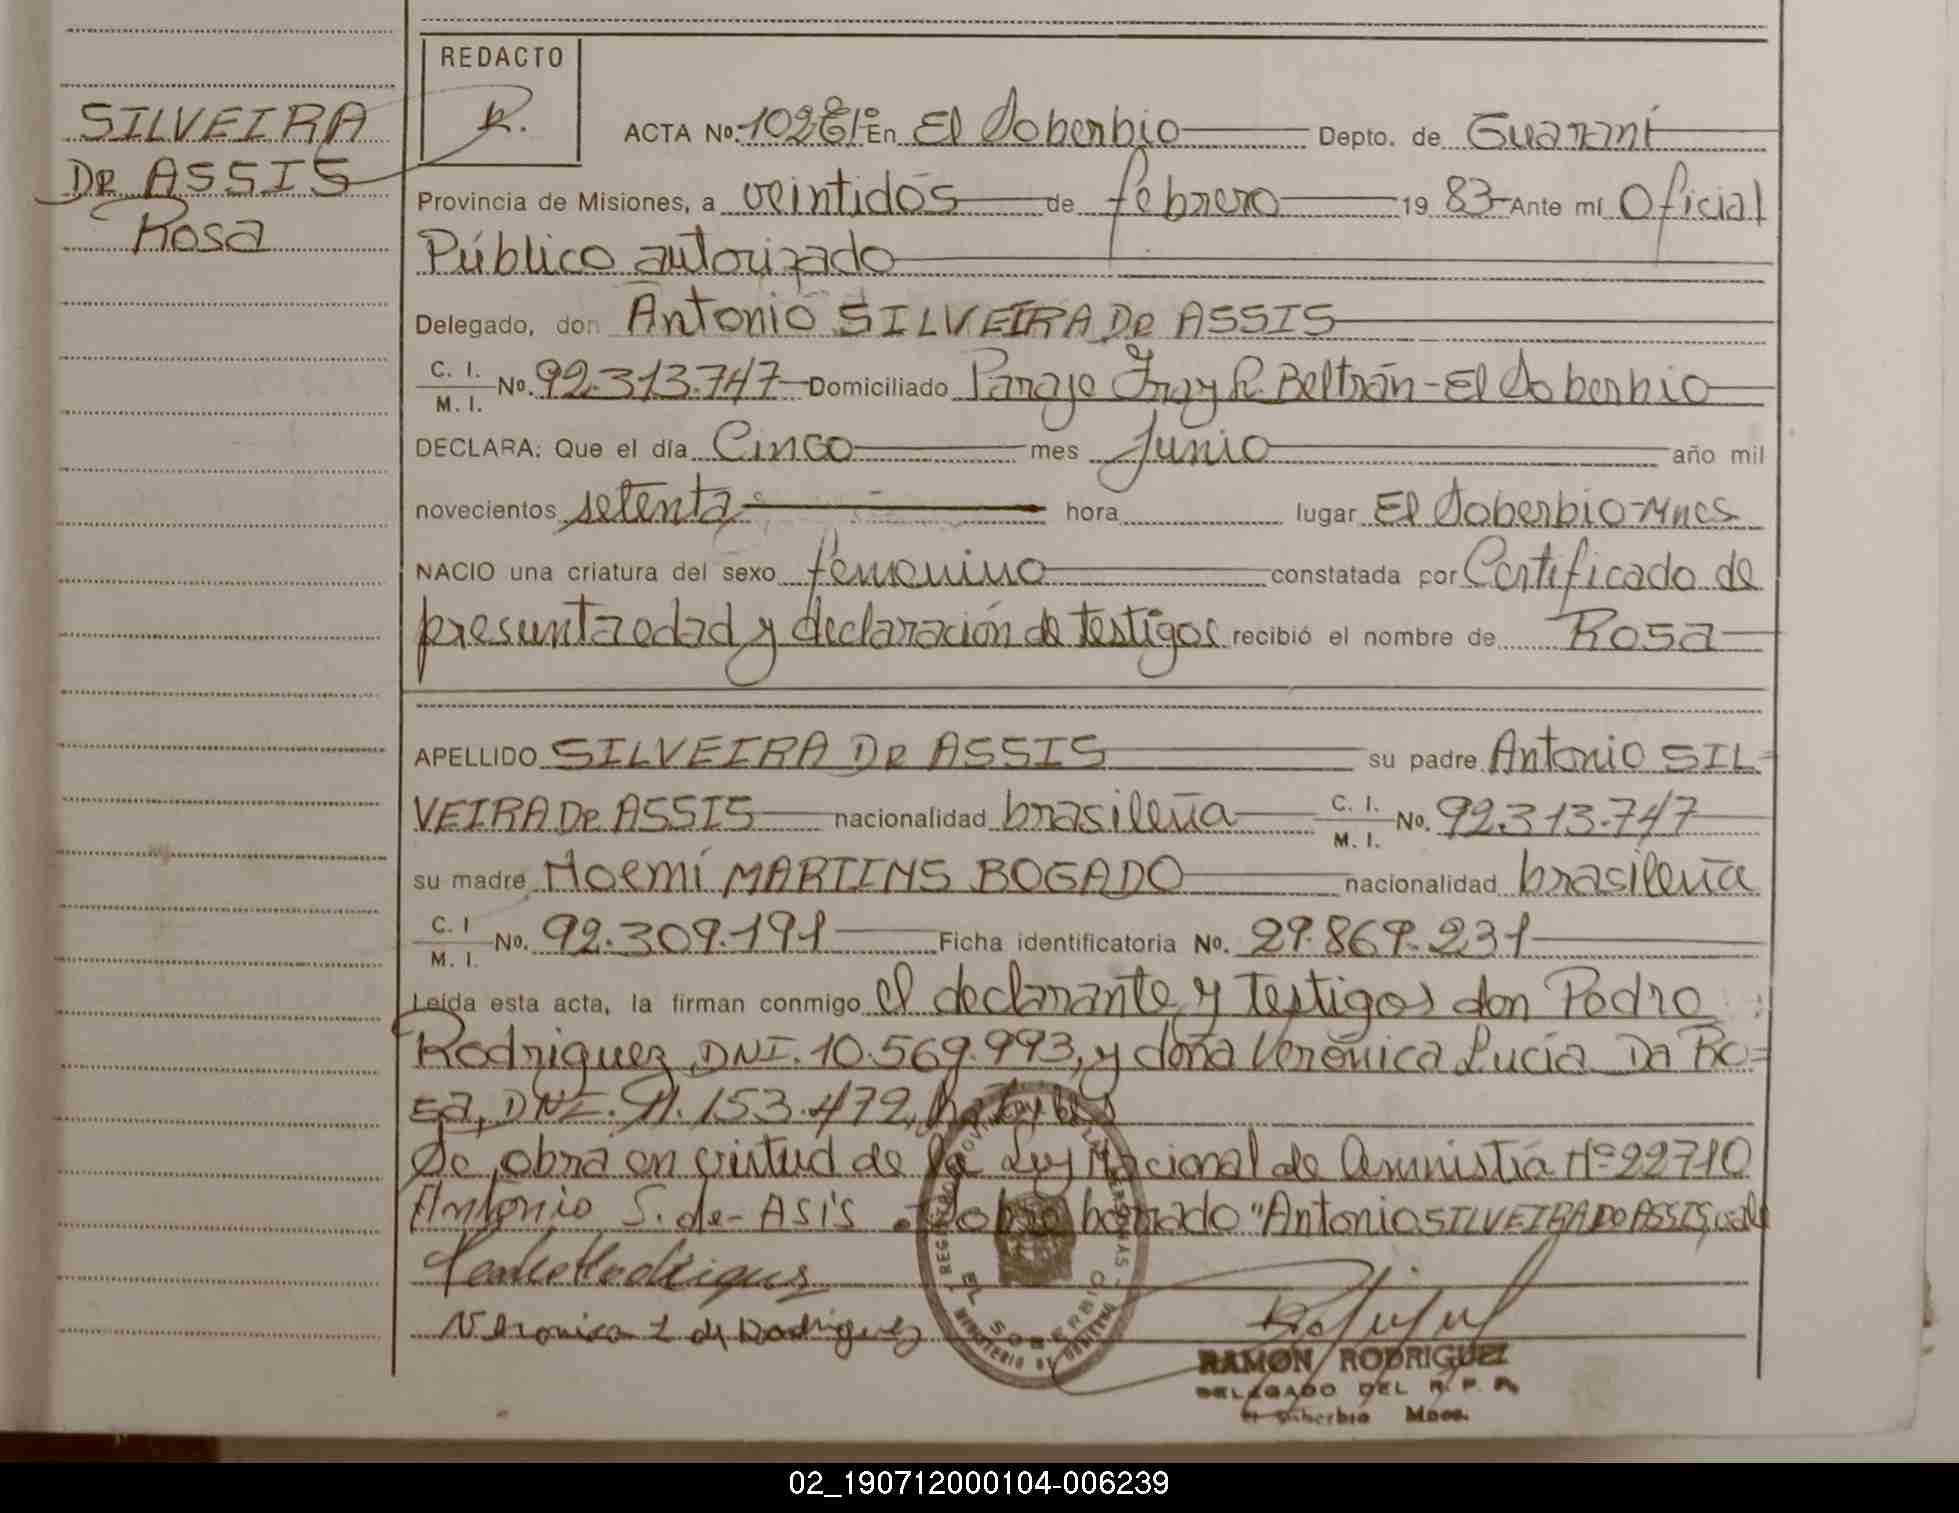 SILVEIRA
De ASSIS
Rosa
REDACTO
R.
ACTA No: 102 En El Soberbio Depto. de Guaraní
Provincia de Misiones, a veintidós de febrero 19 83 Ante mí Oficial
Público autorizado
Delegado, don Antonio SILVEIRA De ASSIS
C. I. M. I. No. 92.313.747 Domiciliado Paraje Fray L. Beltrán - El Soberbio
DECLARA: Que el día Cinco mes Junio año mil
novecientos setenta hora lugar El Soberbio-Mnes
NACIO una criatura del sexo femenino constatada por Certificado de
presunta edad y declaración de testigos recibió el nombre de Rosa
APELLIDO SILVEIRA De ASSIS su padre Antonio SIL-
VEIRA De ASSIS nacionalidad brasileña C. I. M. I. No. 92.313.747
su madre Noemí MARTINS BOGADO nacionalidad brasileña
C. I M. I. No. 92.309.191 Ficha identificatoria No. 29.869.231
Leída esta acta, la firman conmigo el declarante y testigos don Pedro
Rodriguez DNI. 10.569.993, y doña Verónica Lucía Da Ro=
sa, DNI. 91.153.472, hábiles
Se obra en virtud de la Ley Nacional de Amnistía Nº 22710
Antonio S. de - Asis Sobre borrado "Antonio SILVEIRA De ASSIS, vale
Pedro Rodrigues
Veronica L de Rodriguez
REGISTRO PROVINCIAL DE LAS PERSONAS
EL SOBERBIO
MINISTERIO DE GOBIERNO
RAMON RODRIGUEZ
DELEGADO DEL R. P. P.
El Soberbio Mnes.
02_190712000104-006239